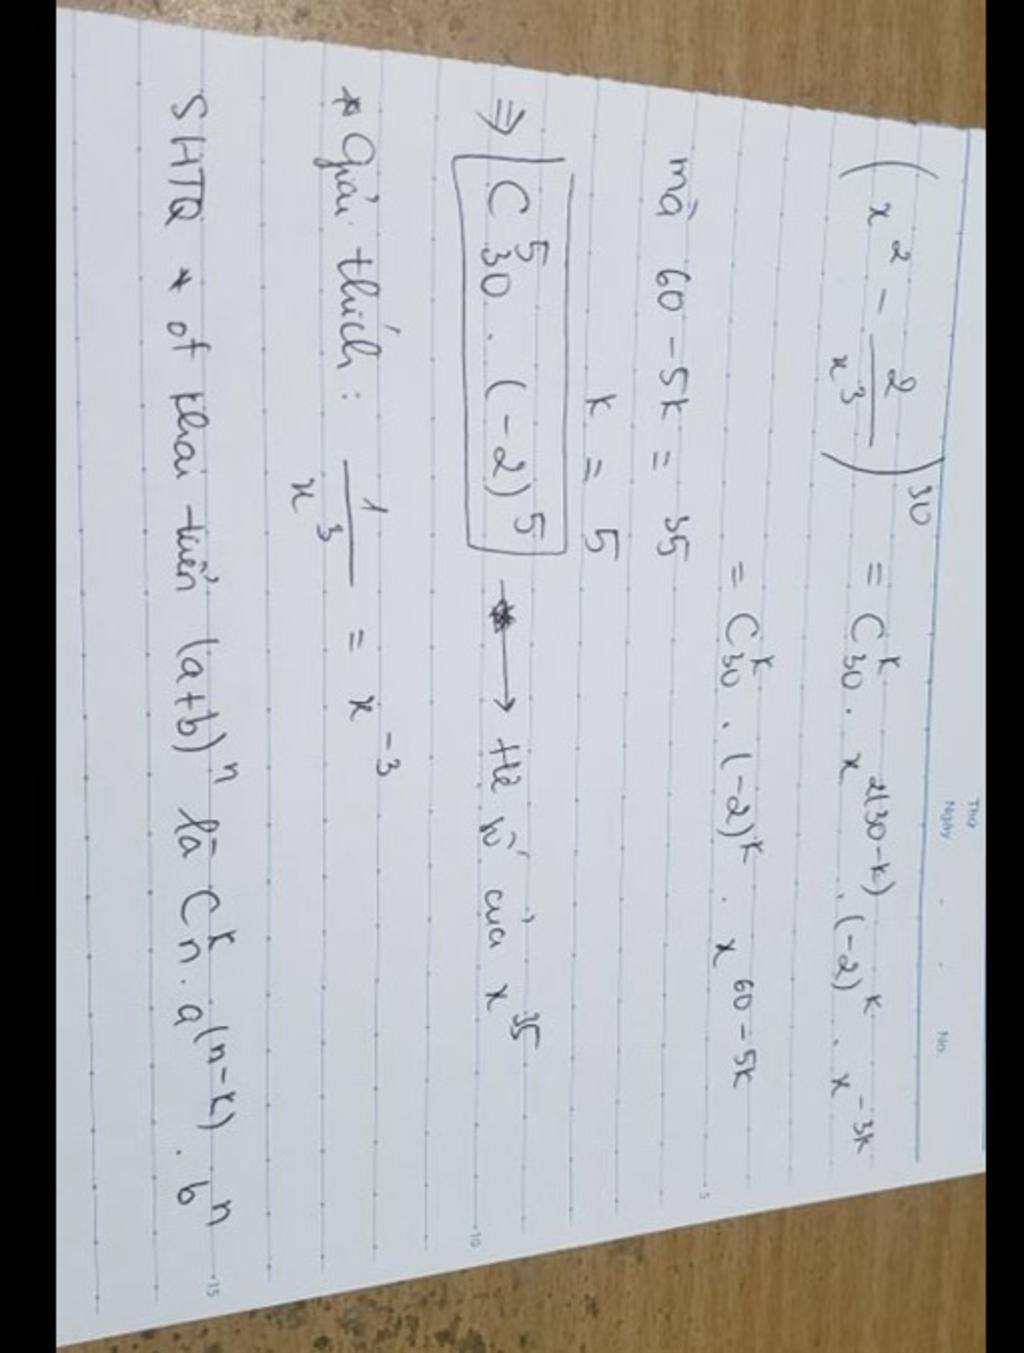 Thứ
Ngày . . No.
(x² - 2/x³)³⁰ = C₃₀ᵏ . x²⁽³⁰⁻ᵏ⁾ . (-2)ᵏ . x⁻³ᵏ
= C₃₀ᵏ . (-2)ᵏ . x⁶⁰⁻⁵ᵏ
mà 60 - 5k = 35
k = 5
⇒ C₃₀⁵ . (-2)⁵ → Hệ số của x³⁵
* Giải thích : 1/x³ = x⁻³
SHTQ * of khai triển (a+b)ⁿ là Cₙᵏ . a⁽ⁿ⁻ᵏ⁾ . bⁿ
5
10
15